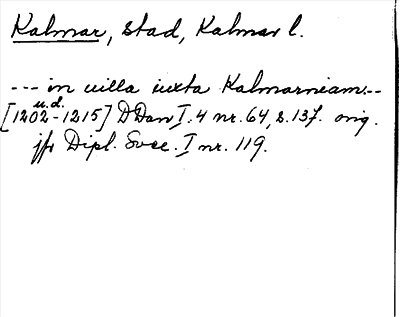 Kalmar, stad, Kalmar l.
--- in uilla iuxta Kalmarniam.--
u.d.
[1202-1215] DDan I.4 nr. 64, s. 137. orig.
jfr Dipl. Svec. I nr. 119.